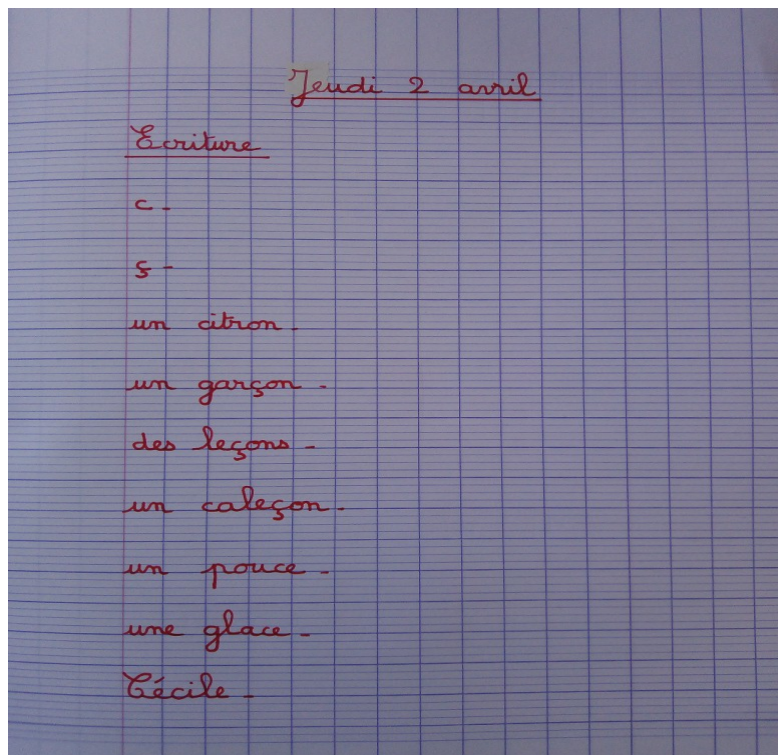 Jeudi 2 avril
Ecriture
c -
ç -
un citron -
un garçon -
des leçons -
un caleçon -
un pouce -
une glace -
Cécile -